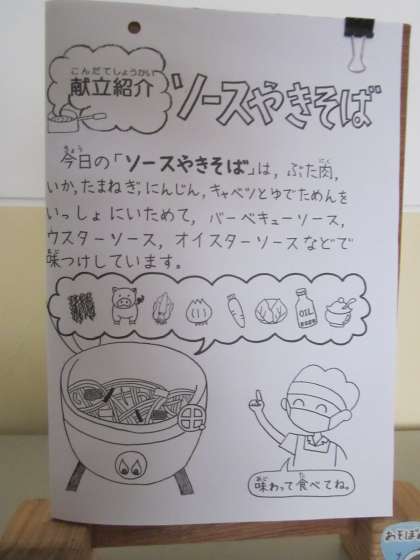 こんだてしょうかい
献立紹介
ソースやきそば
きょう
今日の「ソースやきそば」は，ぶた肉，
にく
いか，たまねぎ，にんじん，キャベツとゆでためんを
いっしょにいためて，バーベキューソース，
ウスターソース，オイスターソースなどで
あじ
味つけしています。
OIL
あじ た
味わって食べてね。
おそぼ